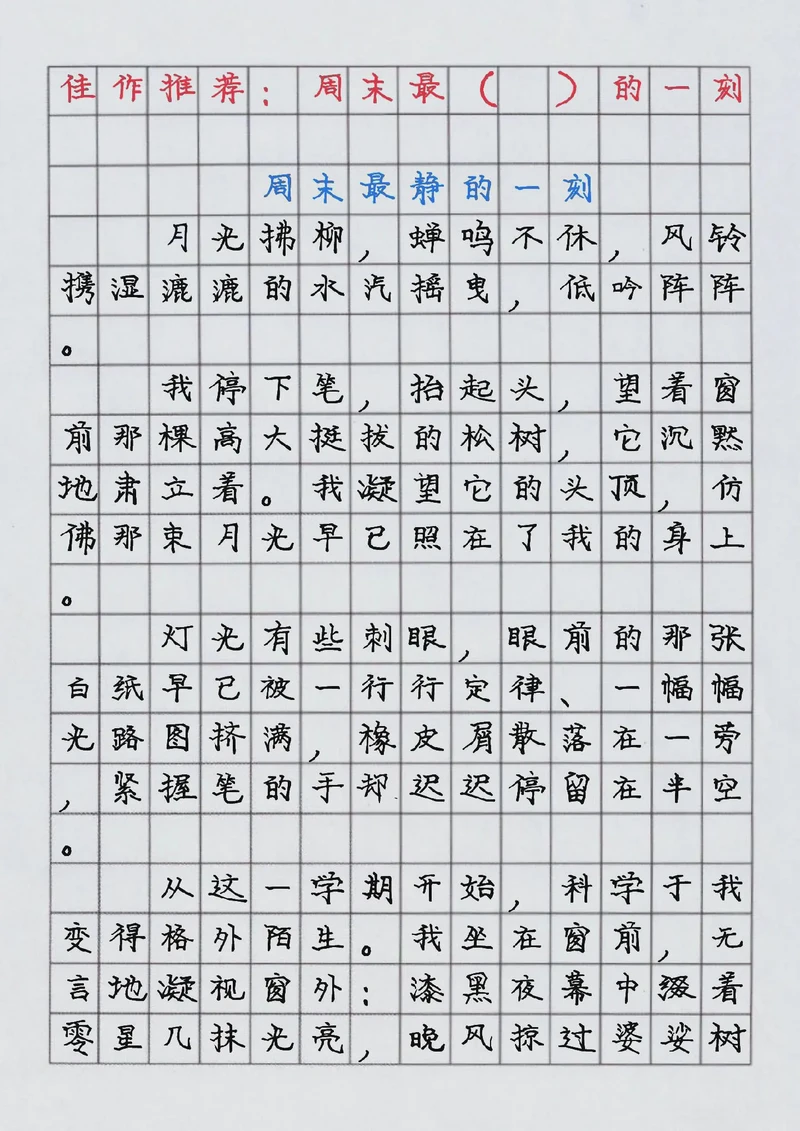 佳作推荐：周末最（ ）的一刻
周末最静的一刻
月光拂柳，蝉鸣不休，风铃
携湿漉漉的水汽摇曳，低吟阵阵
。
我停下笔，抬起头，望着窗
前那棵高大挺拔的松树，它沉默
地肃立着。我凝望它的头顶，仿
佛那束月光早已照在了我的身上
。
灯光有些刺眼，眼前的那张
白纸早已被一行行定律、一幅幅
光路图挤满，橡皮屑散落在一旁
，紧握笔的手却迟迟停留在半空
。
从这一学期开始，科学于我
变得格外陌生。我坐在窗前，无
言地凝视窗外：漆黑夜幕中缀着
零星几抹光亮，晚风掠过婆娑树